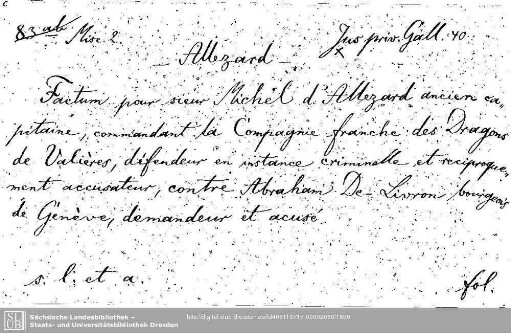 c
83 ab Misc. 2
Jus priv. Gall. 40
x
— Allezard —
Factum pour sieur Michel d'Allezard ancien ca,
pitaine, commandant la Compagnie franche des Dragons
de Valières, défendeur en instance criminelle et reciproque,,
ment accusateur, contre Abraham De-Livron, bourgeois
de Genève, demandeur et acusé.
s. l. et a.
fol.
SLUB
Sächsische Landesbibliothek –
Staats- und Universitätsbibliothek Dresden